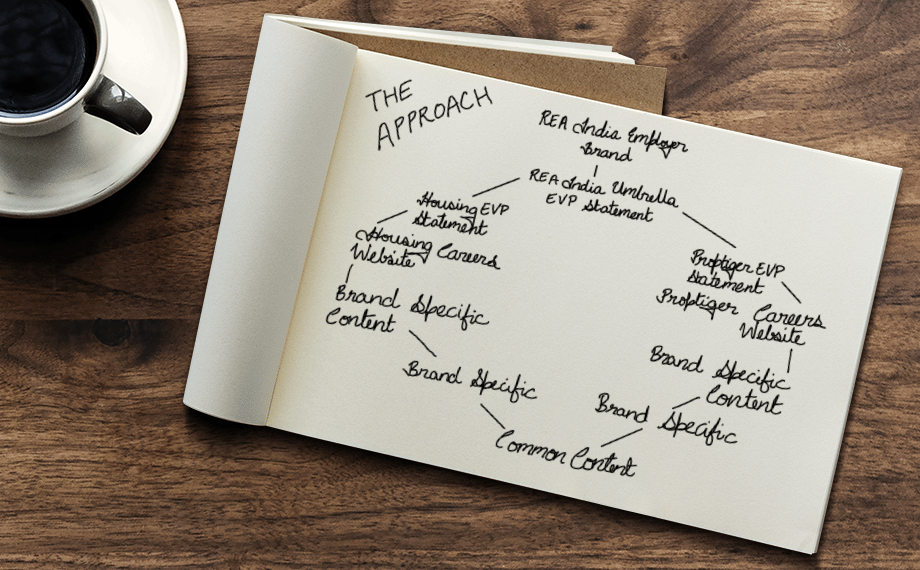 THE
APPROACH
REA India Employer
Brand
REA India Umbrella
EVP Statement
Housing EVP
Statement
Housing Careers
Website
Brand Specific
Content
Brand Specific
Common Content
Proptiger EVP
Statement
Proptiger Careers
Website
Brand Specific
Content
Brand Specific